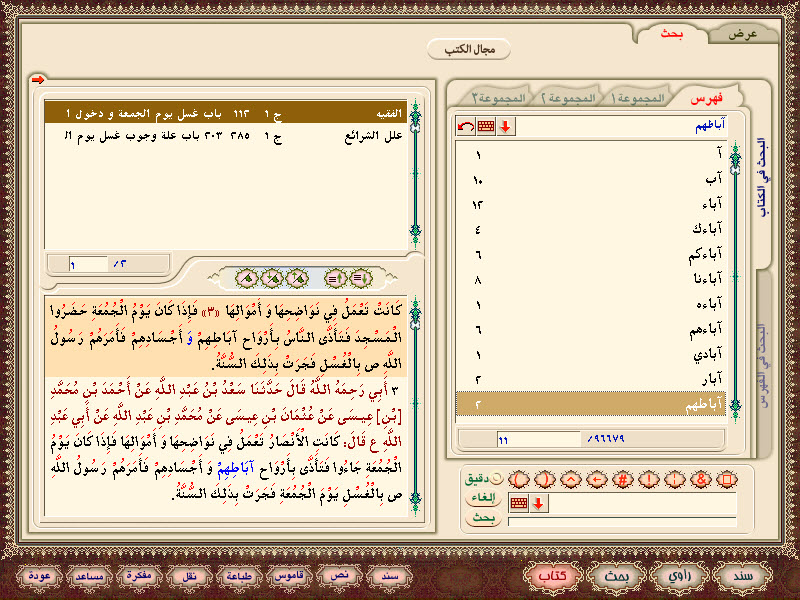 عرض
بحث
مجال الكتب
فهرس
المجموعة ١
المجموعة ٢
المجموعة ٣
آباطهم
آ ١
آب ١٠
آباء ١٢
آباءك ٤
آباءكم ٦
آباءنا ٨
آباءه ١
آباءهم ٦
آبادي ١
آبار ٢
آباطهم ٢
١١ /٩٦٦٧٩
البحث في الكتاب
البحث في الفهرس
الفقيه ج ١ ١١٢ باب غسل يوم الجمعة و دخول ا
علل الشرائع ج ١ ٢٨٥ ٢٠٣ باب علة وجوب غسل يوم ال
١ /٢
كَانَتْ تَعْمَلُ فِي نَوَاضِحِهَا وَ أَمْوَالِهَا «٣» فَإِذَا كَانَ يَوْمُ الْجُمُعَةِ حَضَرُوا
الْمَسْجِدَ فَتَأَذَّى النَّاسُ بِأَرْوَاحِ آبَاطِهِمْ وَ أَجْسَادِهِمْ فَأَمَرَهُمْ رَسُولُ
اللَّهِ ص بِالْغُسْلِ فَجَرَتْ بِذَلِكَ السُّنَّةُ.
٣ أَبِي رَحِمَهُ اللَّهُ قَالَ حَدَّثَنَا سَعْدُ بْنُ عَبْدِ اللَّهِ عَنْ أَحْمَدَ بْنِ مُحَمَّدِ
[بْنِ] عِيسَى عَنْ عُثْمَانَ بْنِ عِيسَى عَنْ مُحَمَّدِ بْنِ عَبْدِ اللَّهِ عَنْ أَبِي عَبْدِ
اللَّهِ ع قَالَ: كَانَتِ الْأَنْصَارُ تَعْمَلُ فِي نَوَاضِحِهَا وَ أَمْوَالِهَا فَإِذَا كَانَ يَوْمُ
الْجُمُعَةِ جَاءُوا فَتَأَذَّى بِأَرْوَاحِ آبَاطِهِمْ وَ أَجْسَادِهِمْ فَأَمَرَهُمْ رَسُولُ اللَّهِ
ص بِالْغُسْلِ يَوْمَ الْجُمُعَةِ فَجَرَتْ بِذَلِكَ السُّنَّةُ.
دقيق ( ) ^ ← # ! ¦ & □
إلغاء
بحث
سند
راوي
بحث
كتاب
سند
نص
قاموس
طباعة
نقل
مفكرة
مساعد
عودة